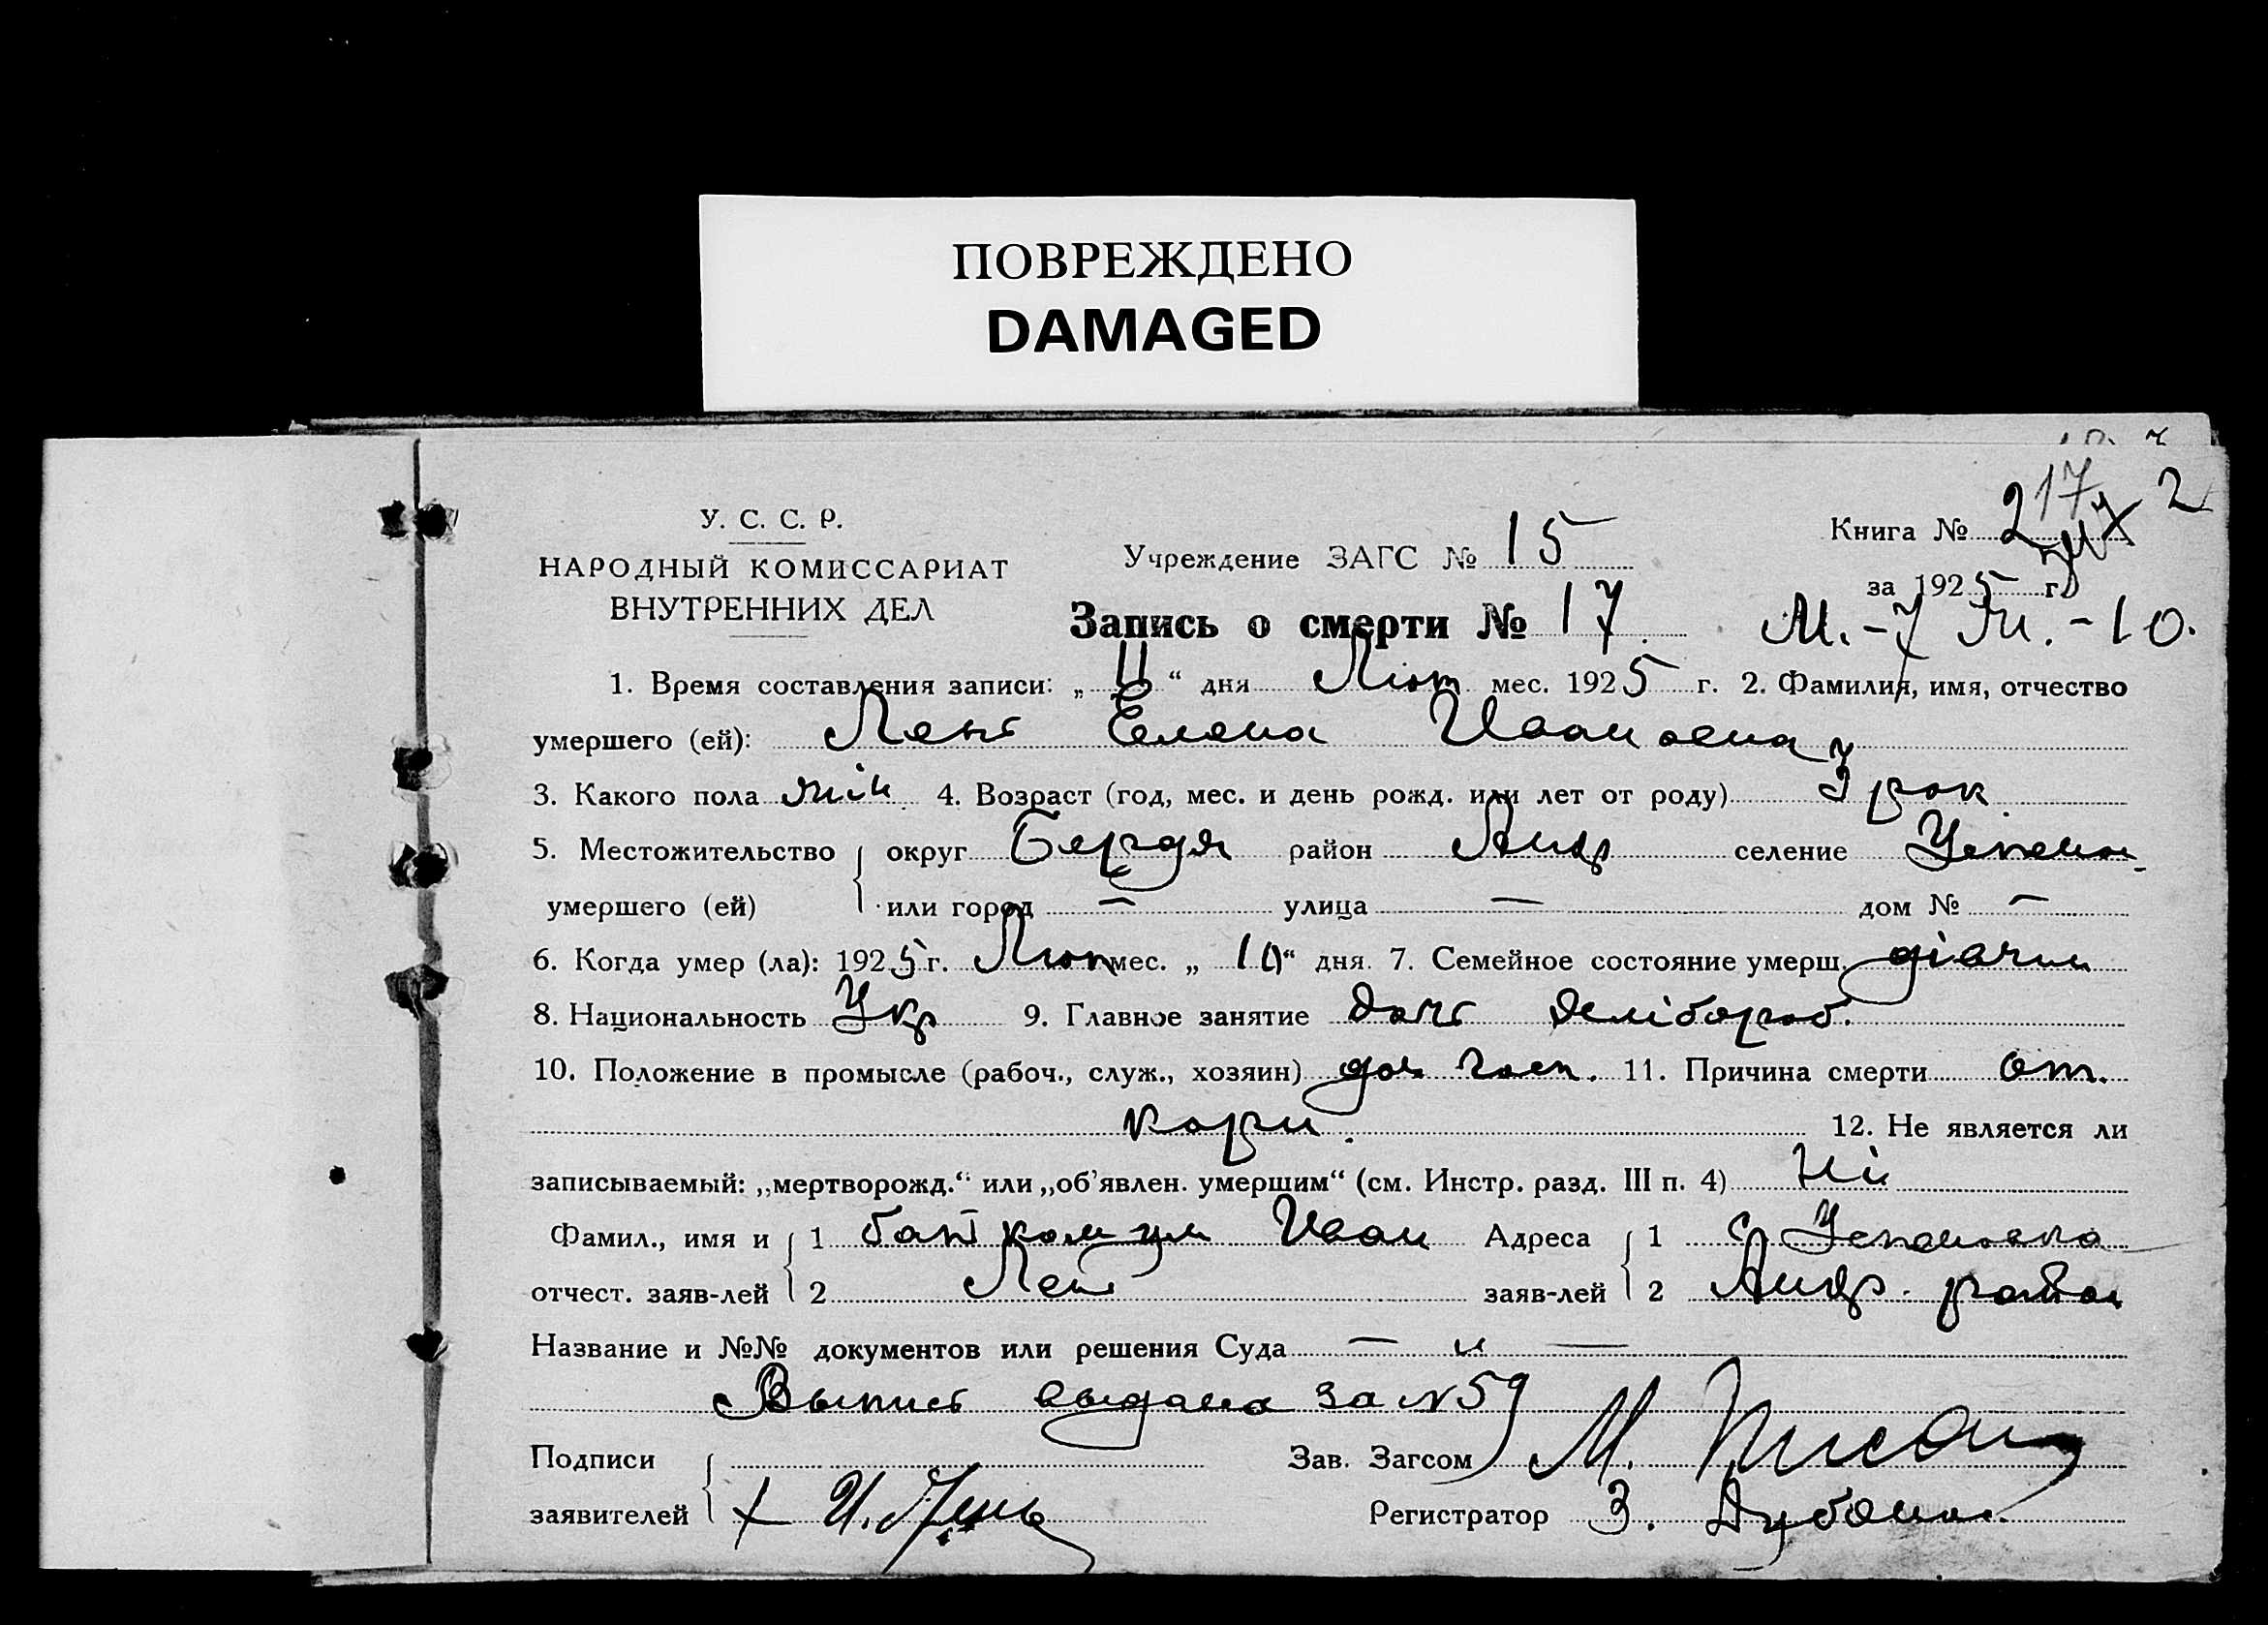 ПОВРЕЖДЕНО
DAMAGED
У. С. С. Р.
НАРОДНЫЙ КОМИССАРИАТ
ВНУТРЕННИХ ДЕЛ
Учреждение ЗАГС № 15
Книга № 2 17 2
за 1925 г.
Запись о смерти № 17 М.-7 Ж.-10.
1. Время составления записи: „11“ дня Лют мес. 1925 г. 2. Фамилия, имя, отчество
умершего (ей): Лень Елена Ивановна
3. Какого пола жін 4. Возраст (год, мес. и день рожд. или лет от роду) рок
5. Местожительство округ Бердя район Андр селение Успенов-
умершего (ей) или город — улица — дом № —
6. Когда умер (ла): 1925 г. Лют мес. „10“ дня. 7. Семейное состояние умерш. дівчин
8. Национальность Укр 9. Главное занятие дочь хлібороб.
10. Положение в промысле (рабоч., служ., хозяин) доч госп. 11. Причина смерти от.
кори. 12. Не является ли
записываемый: „мертворожд.“ или „об'явлен. умершим“ (см. Инстр. разд. III п. 4) Ні
Фамил., имя и 1 Иван Адреса 1 с Успеновка
отчест. заяв-лей 2 Лень заяв-лей 2 Андр. район
Название и №№ документов или решения Суда — и —
Выпись выдана за №59
Подписи Зав. Загсом М.
заявителей + И. Лень Регистратор З.